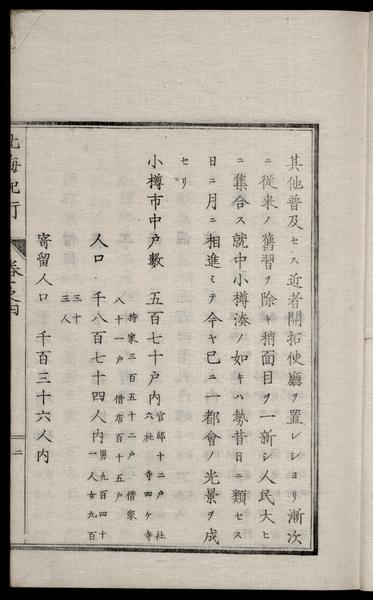 其他普及セス近者開拓使廳ヲ置レショリ漸次
ニ従来ノ舊習ヲ除キ稍面目ヲ一新シ人民大ヒ
ニ集合ス就中小樽湊ノ如キハ勢昔日ニ類セス
日ニ月ニ相進ミテ今ヤ已ニ一都會ノ光景ヲ成
セリ
小樽市中戸數 五百七十戸内
官邸十二戸社
六社 寺四ケ寺
持家三百五十二戸借家
八十一戸 借店百十五戸
人口 千八百七十四人内
男九百四十
一人女九百
三十
三人
寄留人口 千百三十六人内
北海紀行
卷之四
二